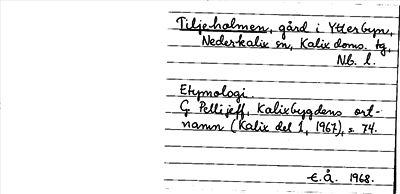 Tiljeholmen, gård i Ytterbyn,
Nederkalix sn, Kalix doms. tg,
Nb. l.
Etymologi.
G Pellijeff, Kalixbygdens ort-
namn (Kalix del 1, 1967), s 74.
E.Å. 1968.